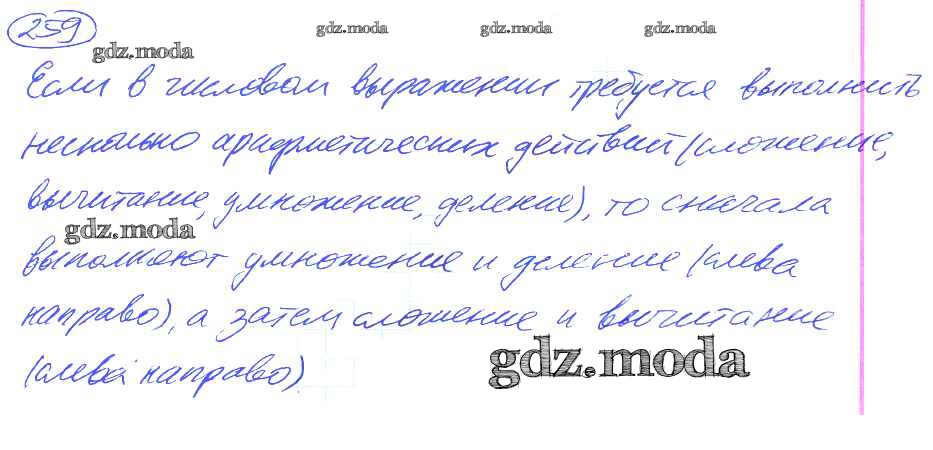 259
gdz.moda gdz.moda gdz.moda
gdz.moda
Если в числовом выражении требуется выполнить
несколько арифметических действий (сложение,
вычитание, умножение, деление), то сначала
gdz.moda
выполняют умножение и деление (слева
направо), а затем сложение и вычитание
gdz.moda
(слева направо).